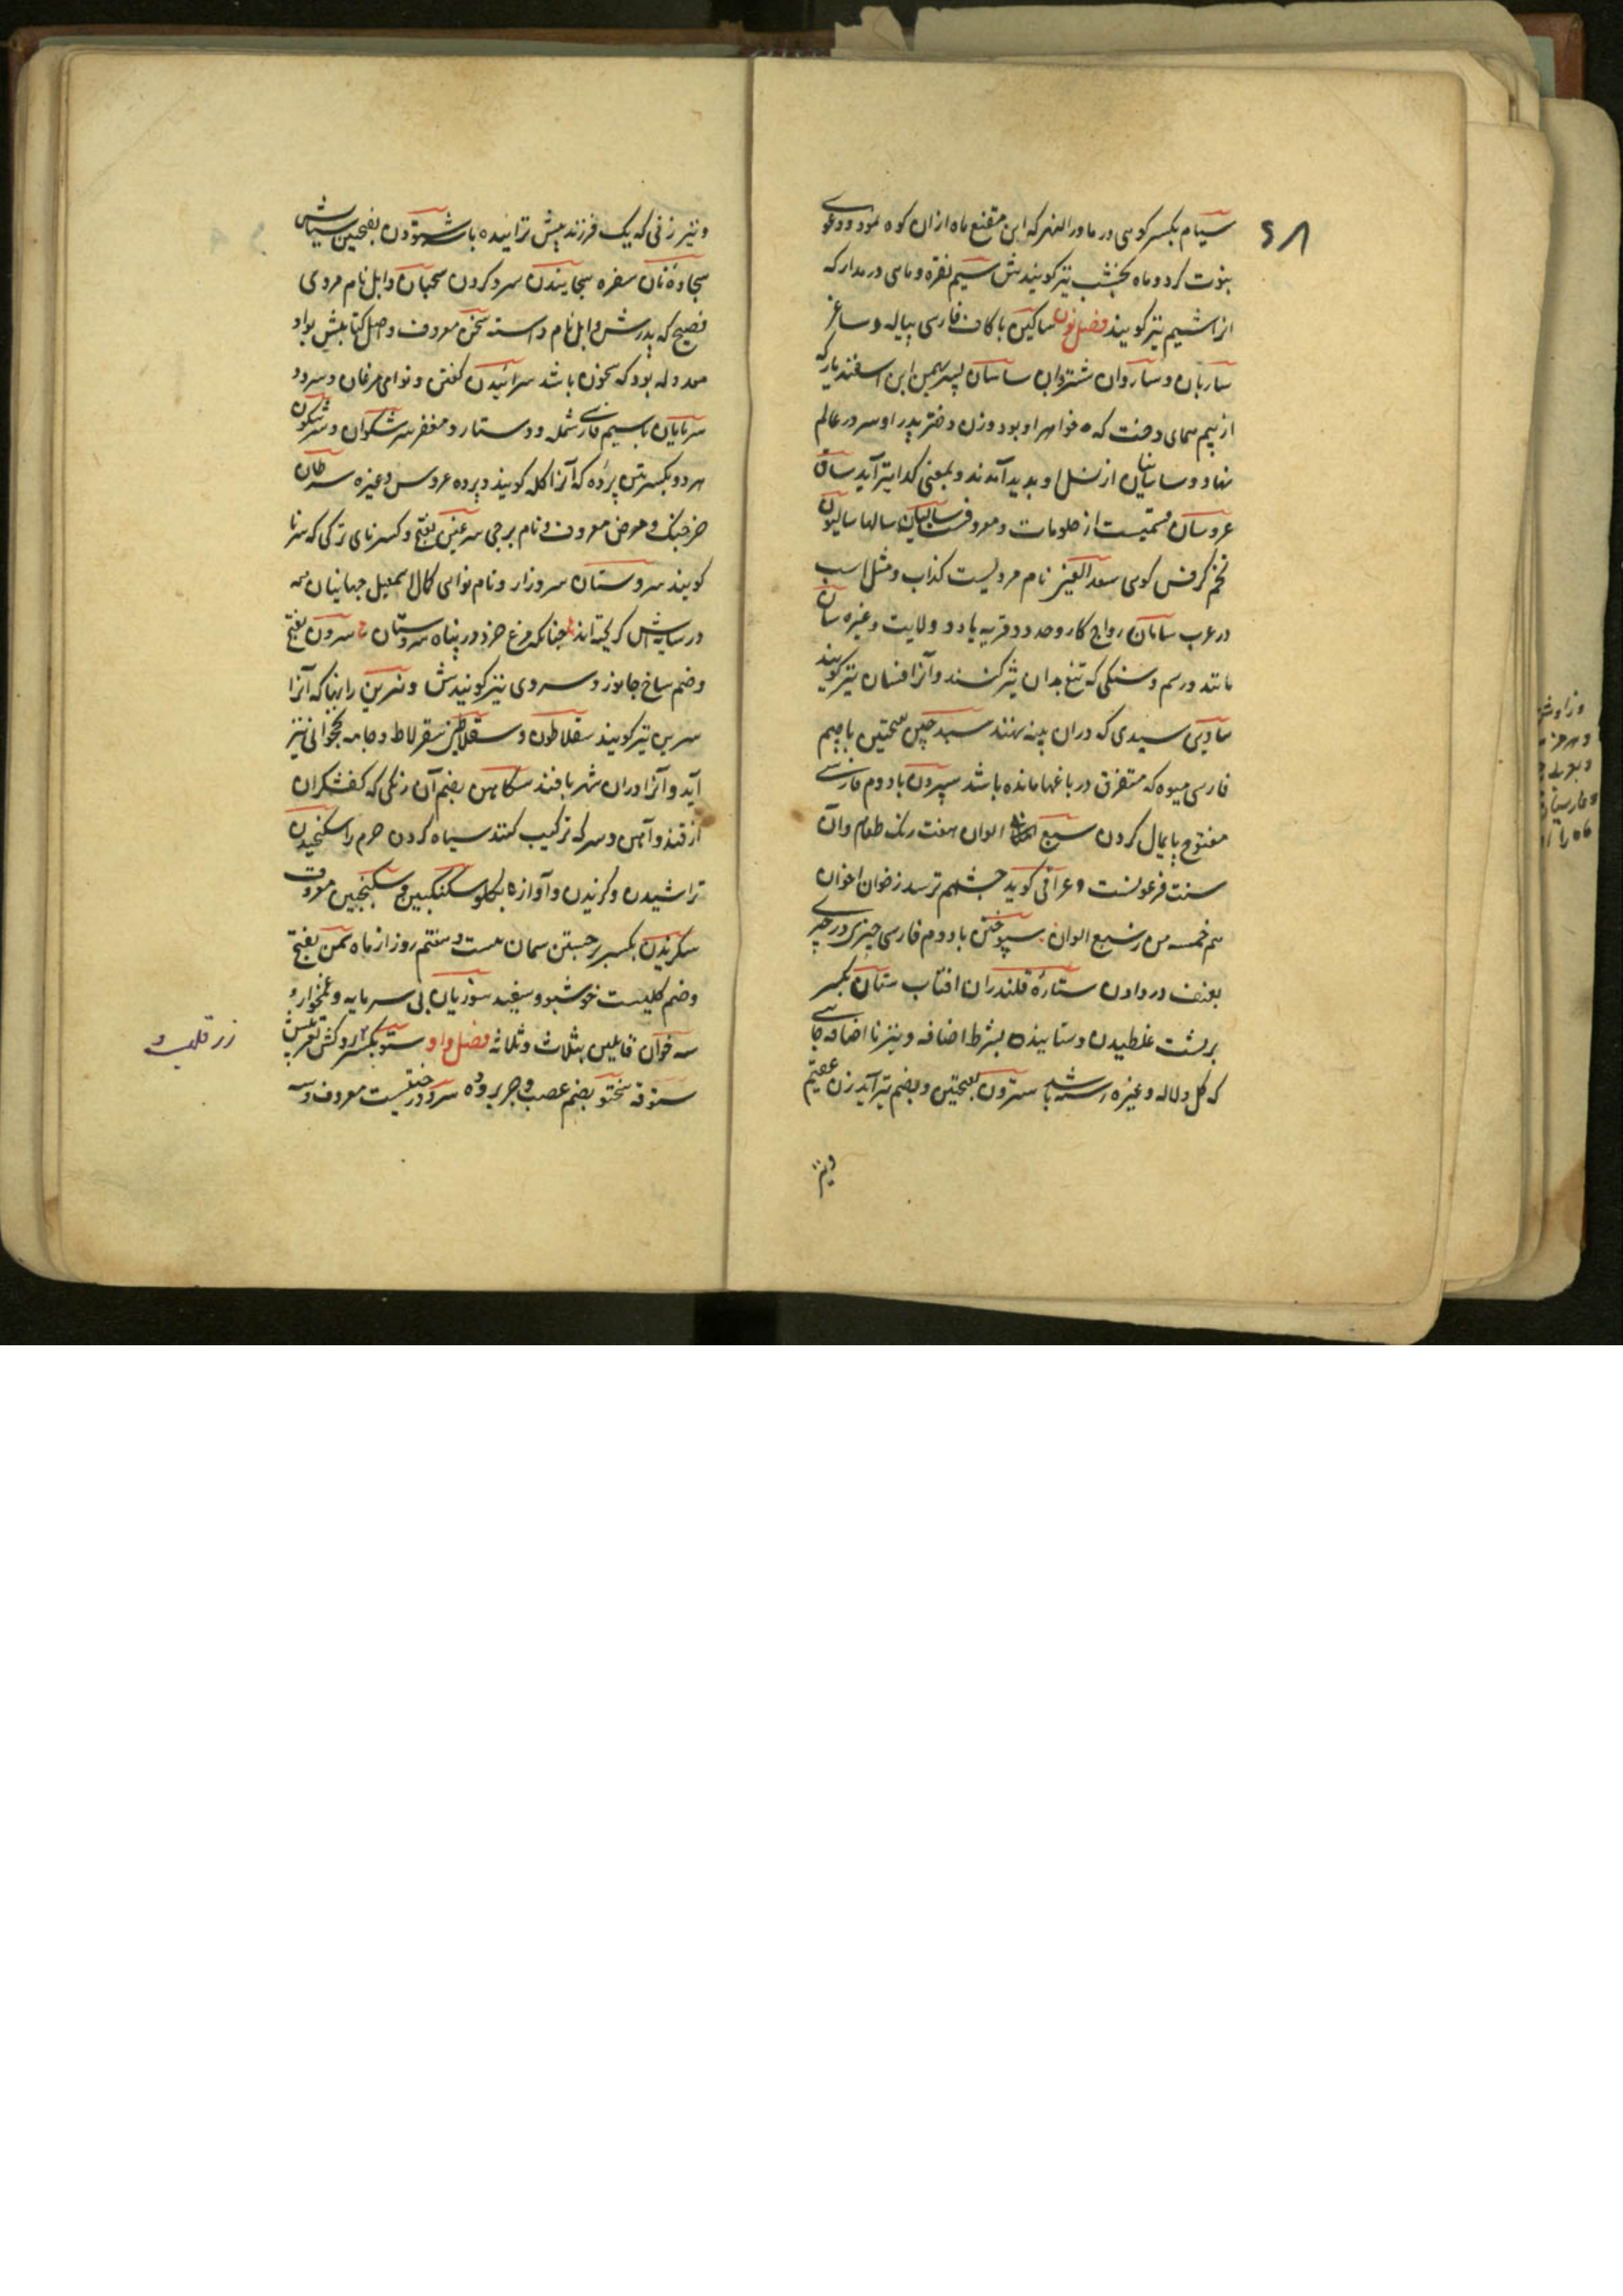 سیام بکسر کوهی در ماورالنهر که ابن مقنع ماه ازان کوه نمود و دعوی
نبوت کرد و ماه نخشب نیز کویندش سیم نقره و ماهی درمدار که
انرا شیم نیز کویند فصل نون ساکین با کاف فارسی پیاله و ساغر
ساربان و ساروان شتروان ساسان پسر بهمن ابن اسفندیار که
از بیم همای دخت که خواهر او بود و زن و دختر پدر او سر در عالم
نهاد و ساسانیان از نسل او بدید آمدند و بمعنی کدا نیز آید سان
عروسان قسمیست از حلویات و معروف سالیان سالها سالیون
تخم کرفس کوهی سعد العیر نام مردیست کذاب و مثل است
در عرب سامان رواج کار و حد و قریه یا دو ولایت و غیره سان
مانند و رسم و سنکی که تیغ بدان تیز کنند و آنرا افسان نیز کویند
ساوین سبدی که دران پنبه نهند سبد چین بفتحتین با جیم
فارسی میوه که متفرق در باغها مانده باشد سپردن با دوم فارسی
مفتوح پایمال کردن سبع الوان هفت رنک طعام و آن
سنت فرعونست و عراقی کوید چشمم ترسد زخوان اخوان
هم خمسه من سبع الوان سپوختن با دوم فارسی چیزی در چیزی
بعنف در دادن ستارهٔ قلندران افتاب ستان بکسر
برپشت غلطیدن و ستاینده بشرط اضافه و نیز با اضافه جایی
که کل و لاله و غیره رسته باشد سترون بفتحتین و بضم نیز آید زن عقیم
و نیز
و نیز زنی که یک فرزند بیش نزاییده باشد ستودن بفتحین ستایش
سجاوه نان سفره سجانیدن سرد کردن سحبان وابل نام مردی
فصیح که پدرش وابل نام داشته سخن معروف و اصل کتابتش بواو
معدوله بود که سخون باشد سرائیدن کفتن و نوای مرغان و سرود
سرپایان با سیم فارسی شمله و دستار و مغفر سرشکوان و شرشکون
هر دو بکسرتین پرده که آنرا کله کویند و پرده عروس و غیره سرطان
خرچنک و مرض معروف و نام برجی سرغین بفتح و کسر نای ترکی که سرنا
کویند سروستان سروزار و نام نوایی کمال اسمعیل جهانیان همه
در سایه‌اش کریخته‌اند چنانکه مرغ خرد در پناه سروستان سرون بفتح
و ضم شاخ جانور و سروی نیز کویندش و نسرین را نیز که آنرا
سرین نیز کویند سقلاطون و سقلاطین سقرلاط و جامه نخجوانی نیز
آید و آنرا دران شهر بافند سکاهن بضم آن رنکی که کفشکران
از قند و آهن و سرکه ترکیب کنند سیاه کردن چرم را سکنجیدن
تراشیدن و کزیدن و آوازه بکلو سکنکبین و سکنجبین معروف
سکزیدن بکسر برجستن سمان هست و هفتم روز از ماه سمن بفتح
و ضم کلیست خوشبو و سفید سوزیان بی سرمایه و غمخوار و
سه خوان قائلین بثلاث و ثلاثه فصل واو ستو بکسر روکش تعریبش
ستوقه سختو بضم عصب و چرب روده سرو درختیست معروف و سه
زر قلب و